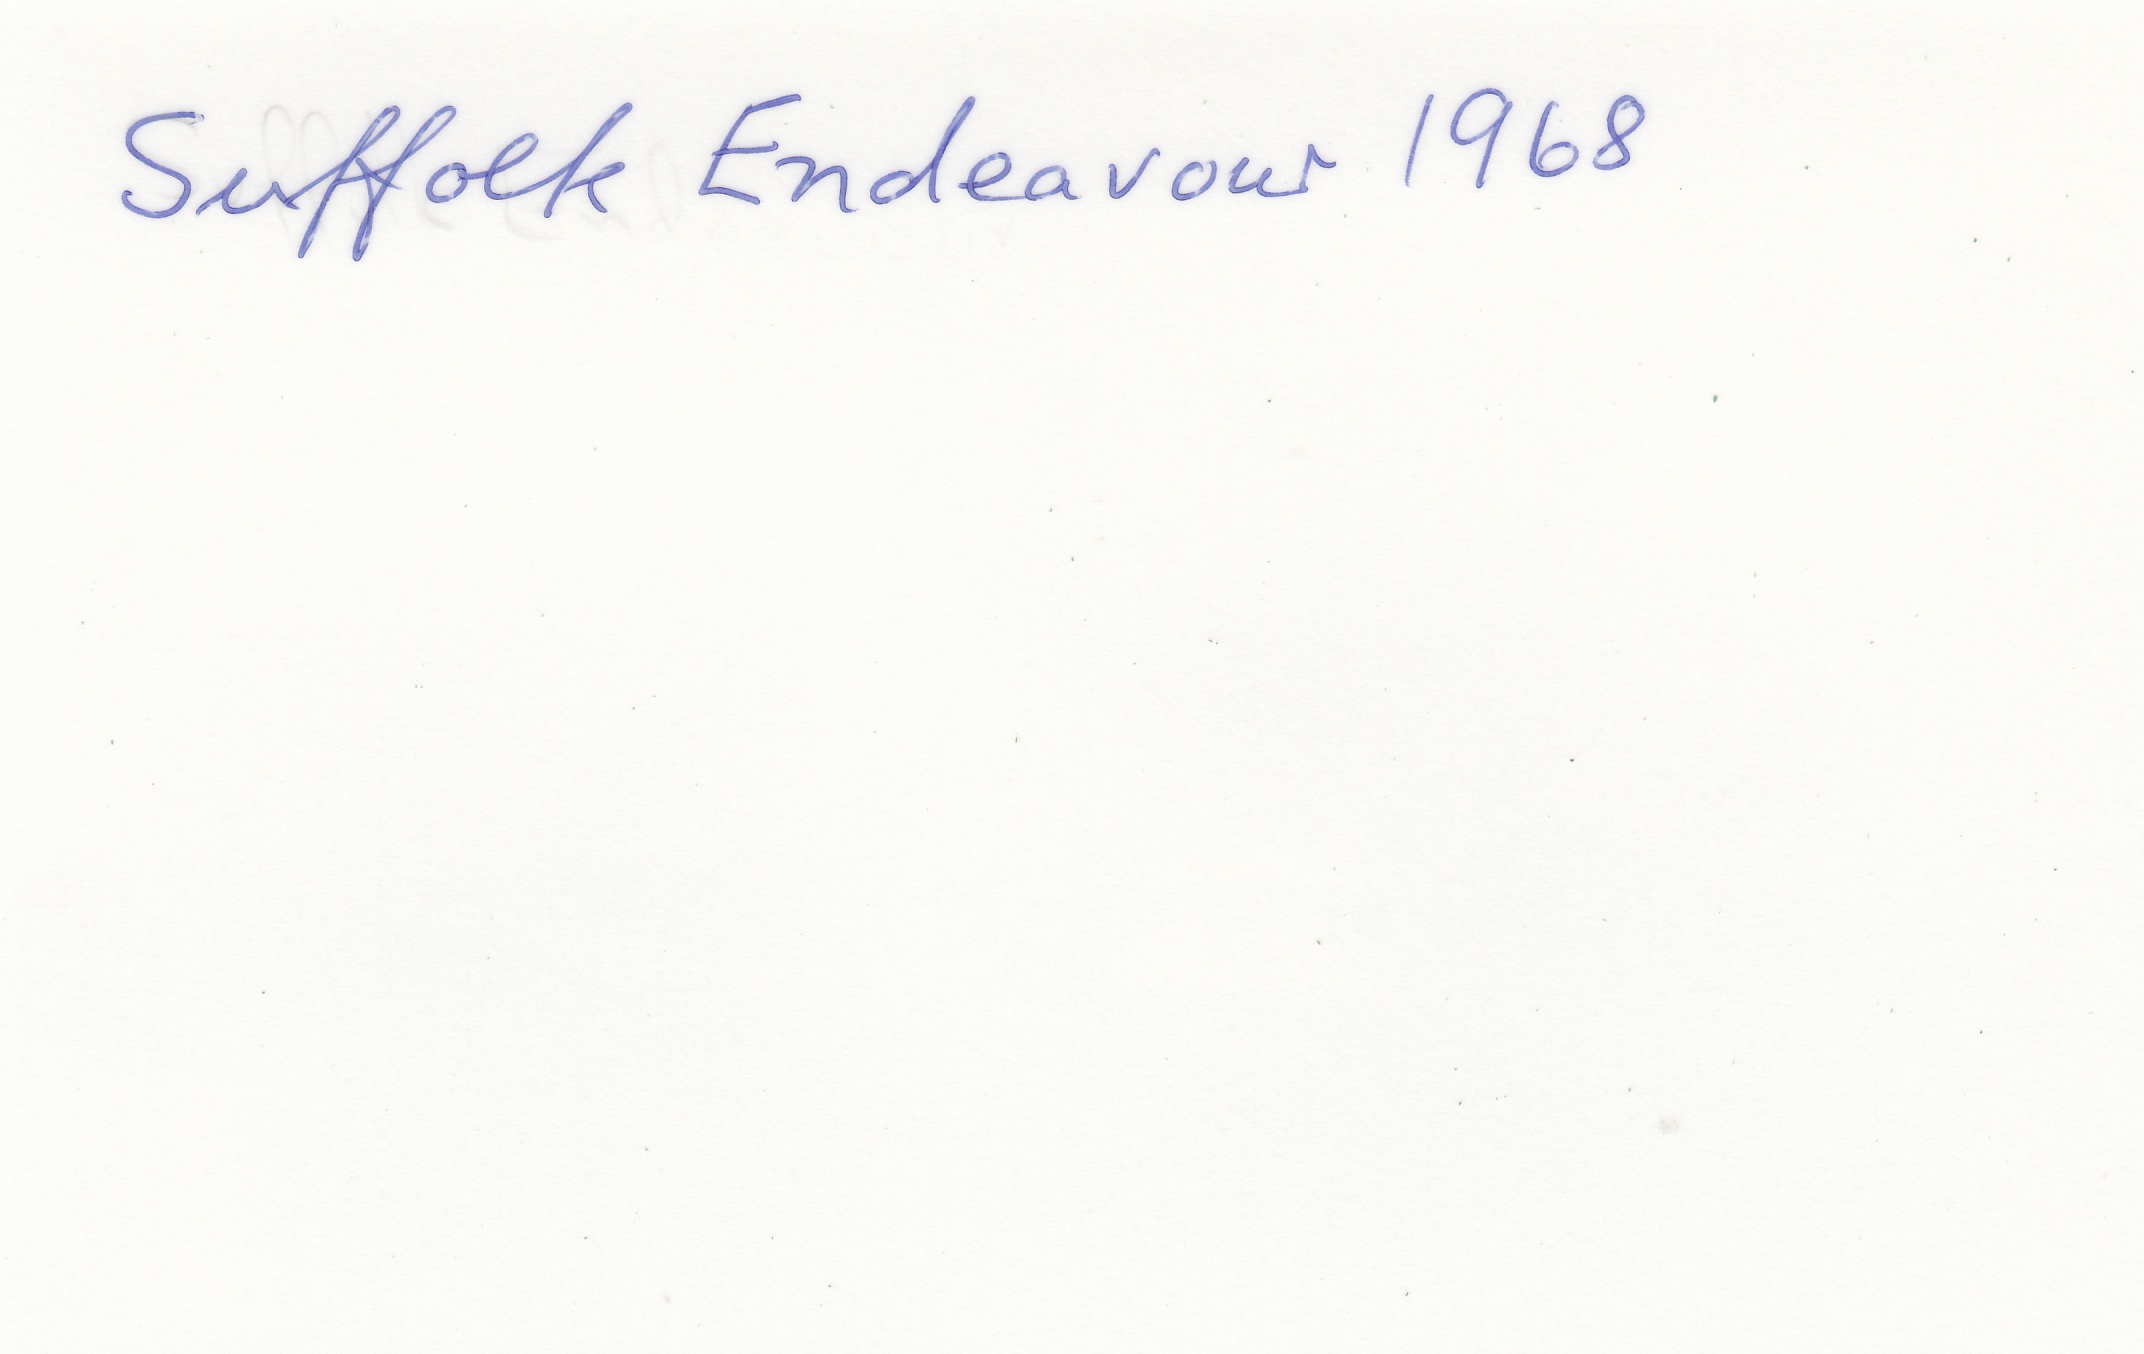 Suffolk Endeavour 1968